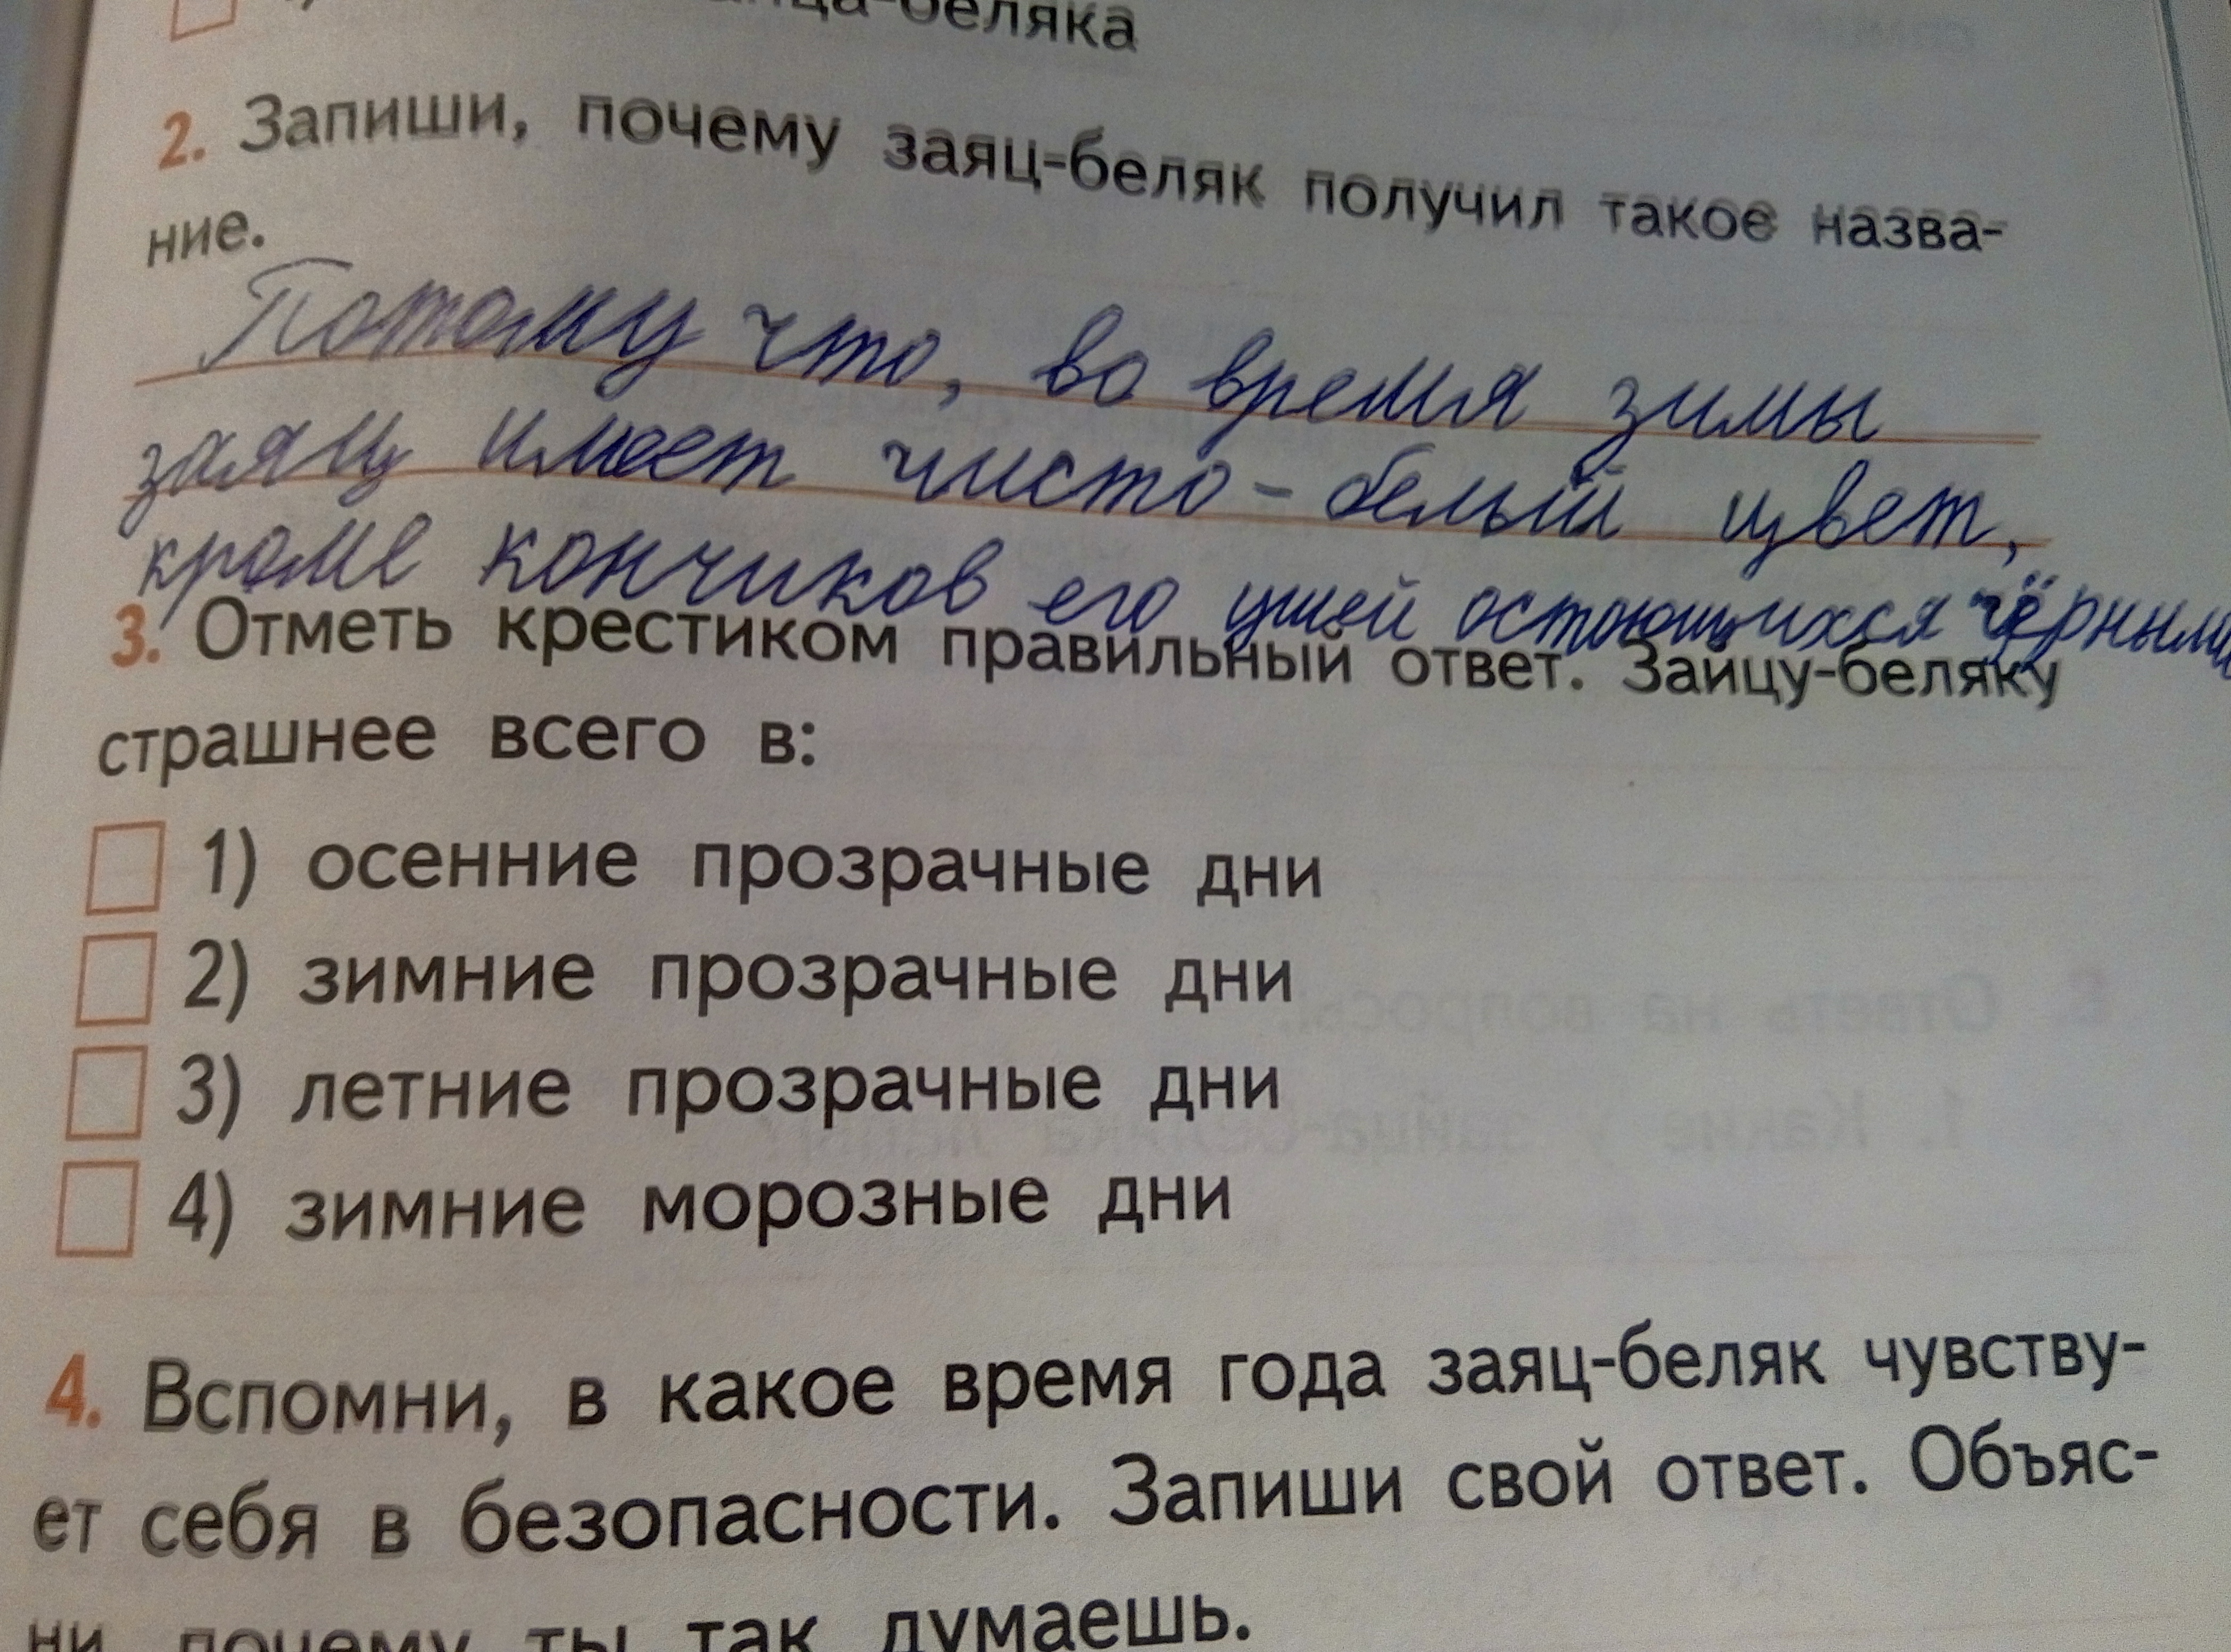 -беляка
2. Запиши, почему заяц-беляк получил такое назва-
ние.
Потому что, во время зимы
заяц имеет чисто-белый цвет,
кроме кончиков его ушей остоющихся чёрными
3. Отметь крестиком правильный ответ. Зайцу-беляку
страшнее всего в:
1) осенние прозрачные дни
2) зимние прозрачные дни
3) летние прозрачные дни
4) зимние морозные дни
4. Вспомни, в какое время года заяц-беляк чувству-
ет себя в безопасности. Запиши свой ответ. Объяс-
ни, почему ты так думаешь.